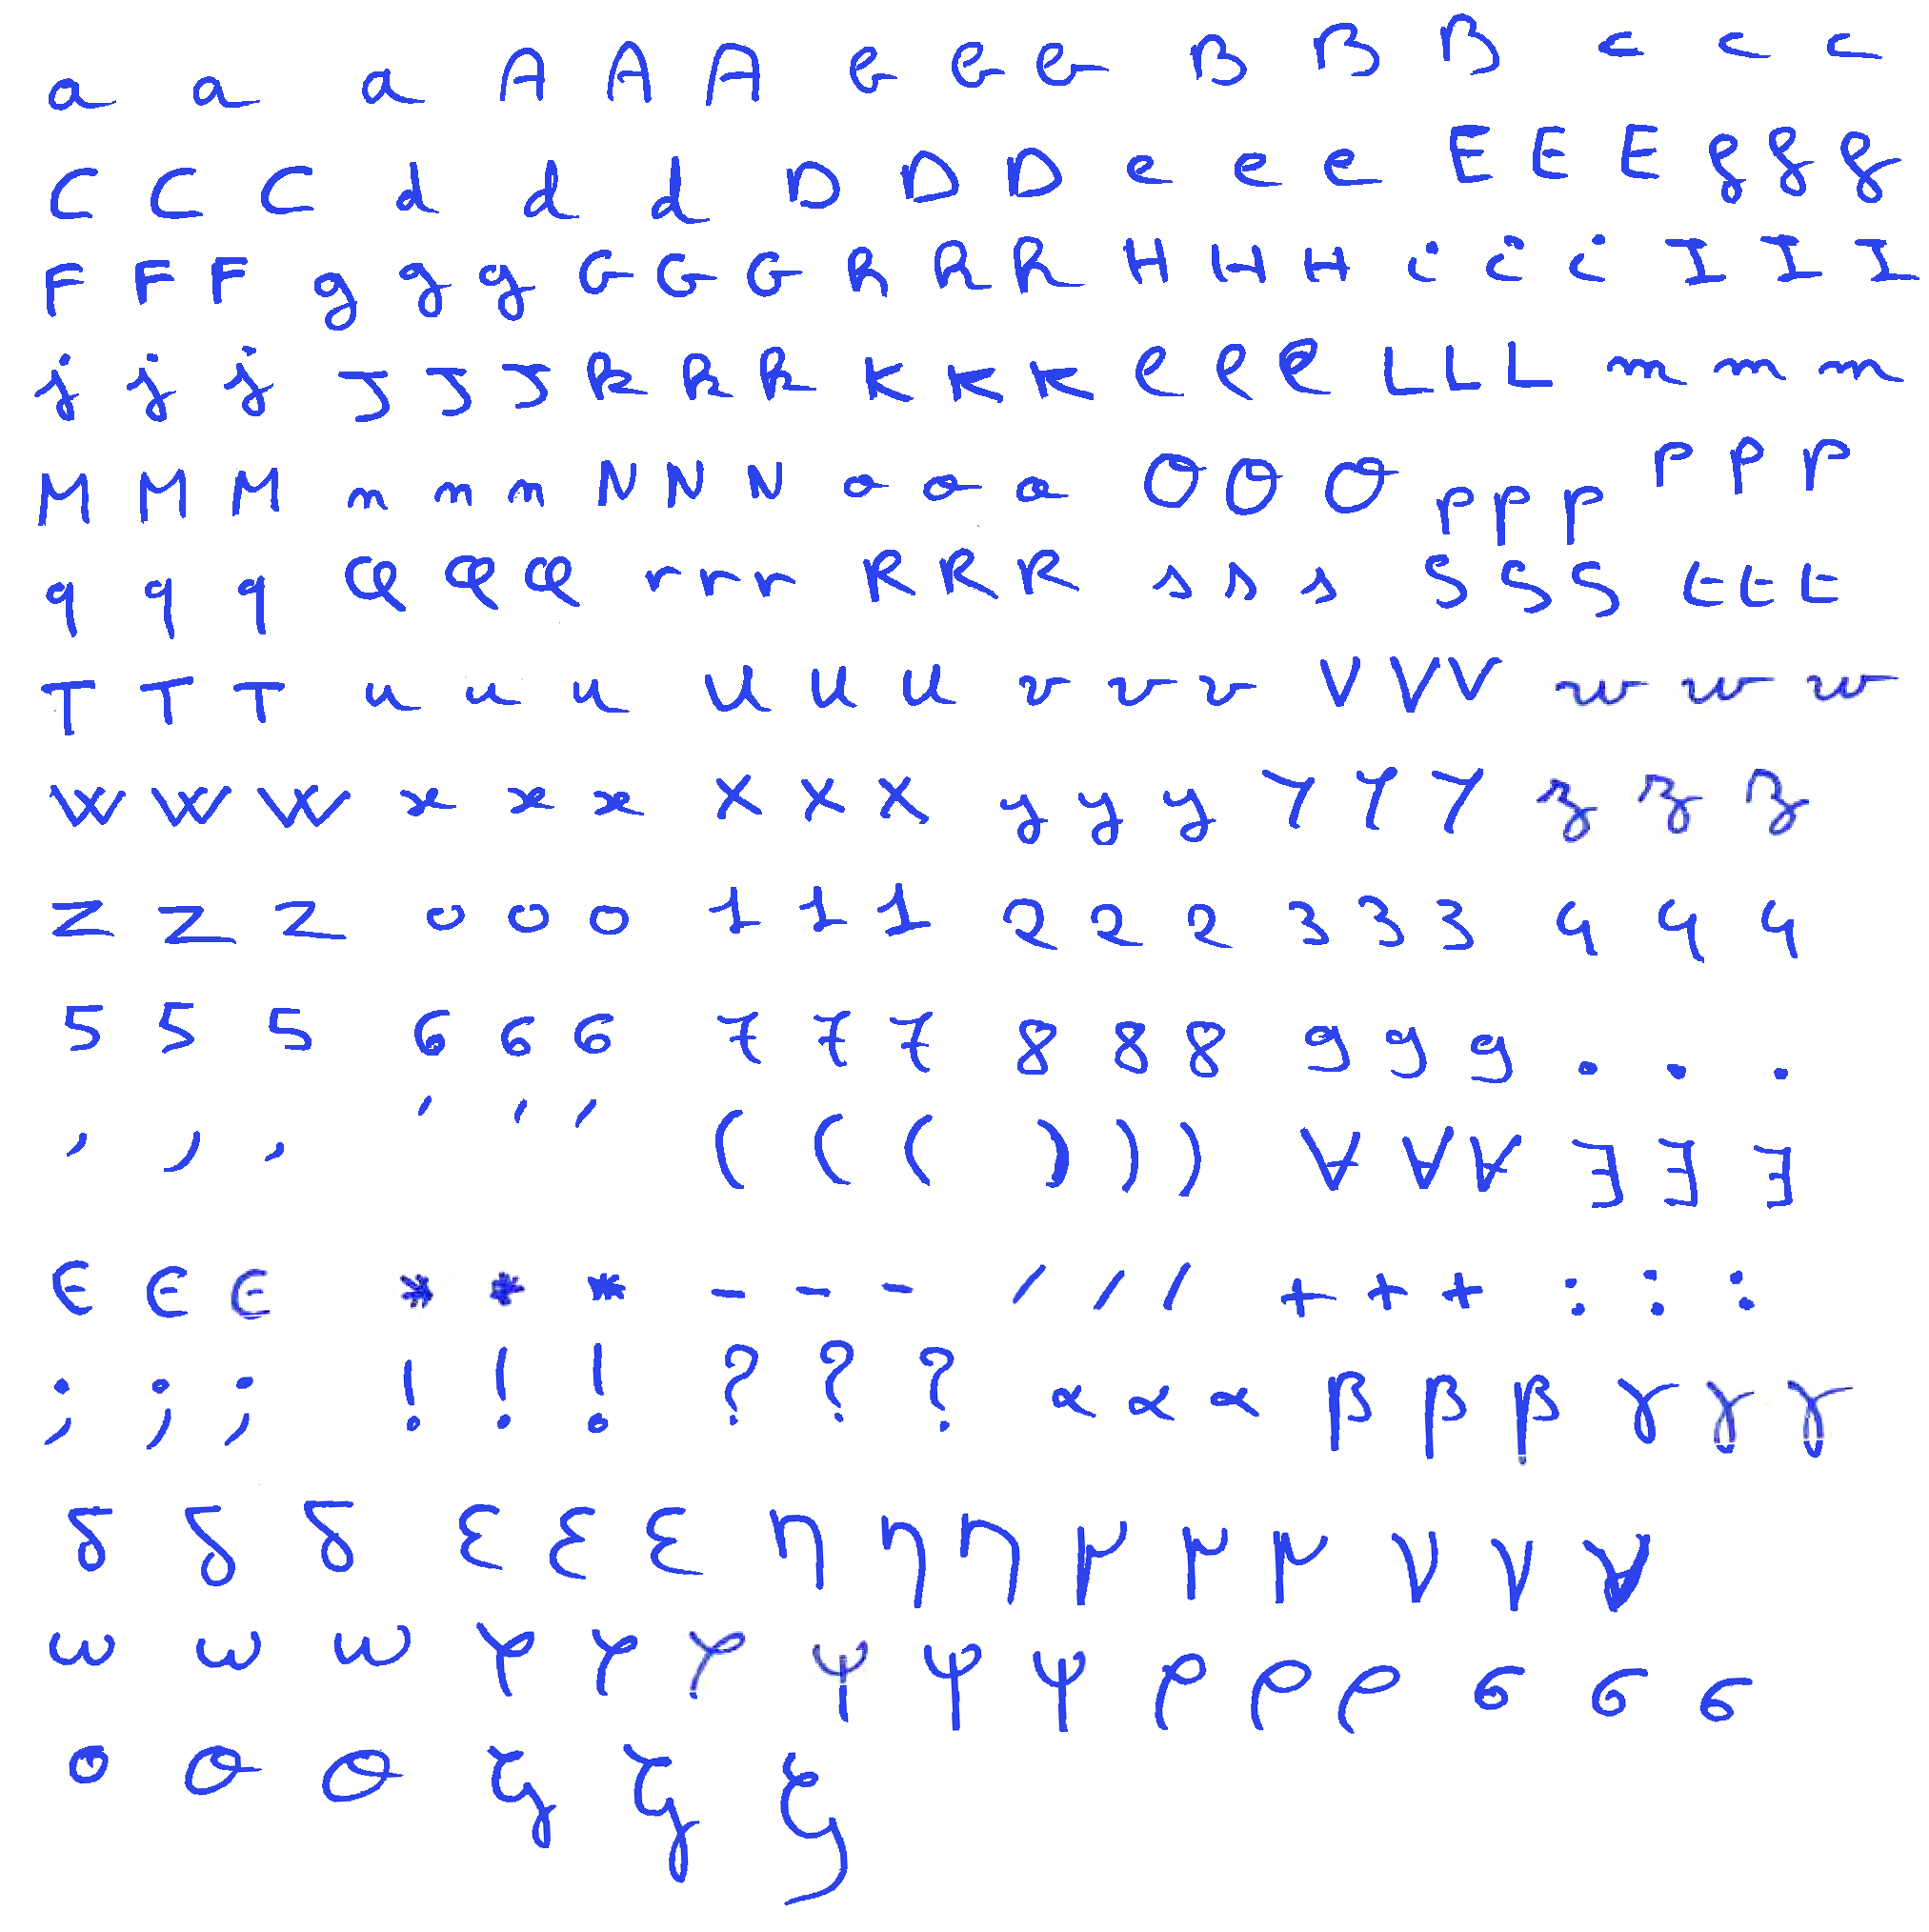 a a a A A A b b b B B B c c c
C C C d d d D D D e e e E E E f f f
F F F g g g G G G h h h H H H i i i I I I
j j j J J J k k k K K K l l l L L L m m m
M M M n n n N N N o o o O O O p p p P P P
q q q Q Q Q r r r R R R s s s S S S t t t
T T T u u u U U U v v v V V V w w w
W W W x x x X X X y y y Y Y Y z z z
Z Z Z 0 0 0 1 1 1 2 2 2 3 3 3 4 4 4
5 5 5 6 6 6 7 7 7 8 8 8 9 9 9 . . .
, , , ' ' ' ( ( ( ) ) ) ∀ ∀ ∀ ∃ ∃ ∃
∈ ∈ ∈ * * * - - - / / / + + + : : :
; ; ; ! ! ! ? ? ? α α α β β β γ γ γ
δ δ δ ε ε ε η η η μ μ μ ν ν ν
ω ω ω φ φ φ ψ ψ ψ ρ ρ ρ σ σ σ
ο ο ο ζ ζ ζ